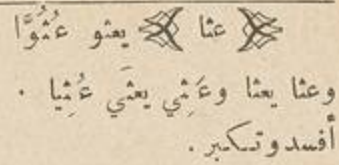 عثا يعثو عُثُوًّا
وعثا يعثا وعَثِي يعثَي عُثِيا .
أفسد وتكبر .